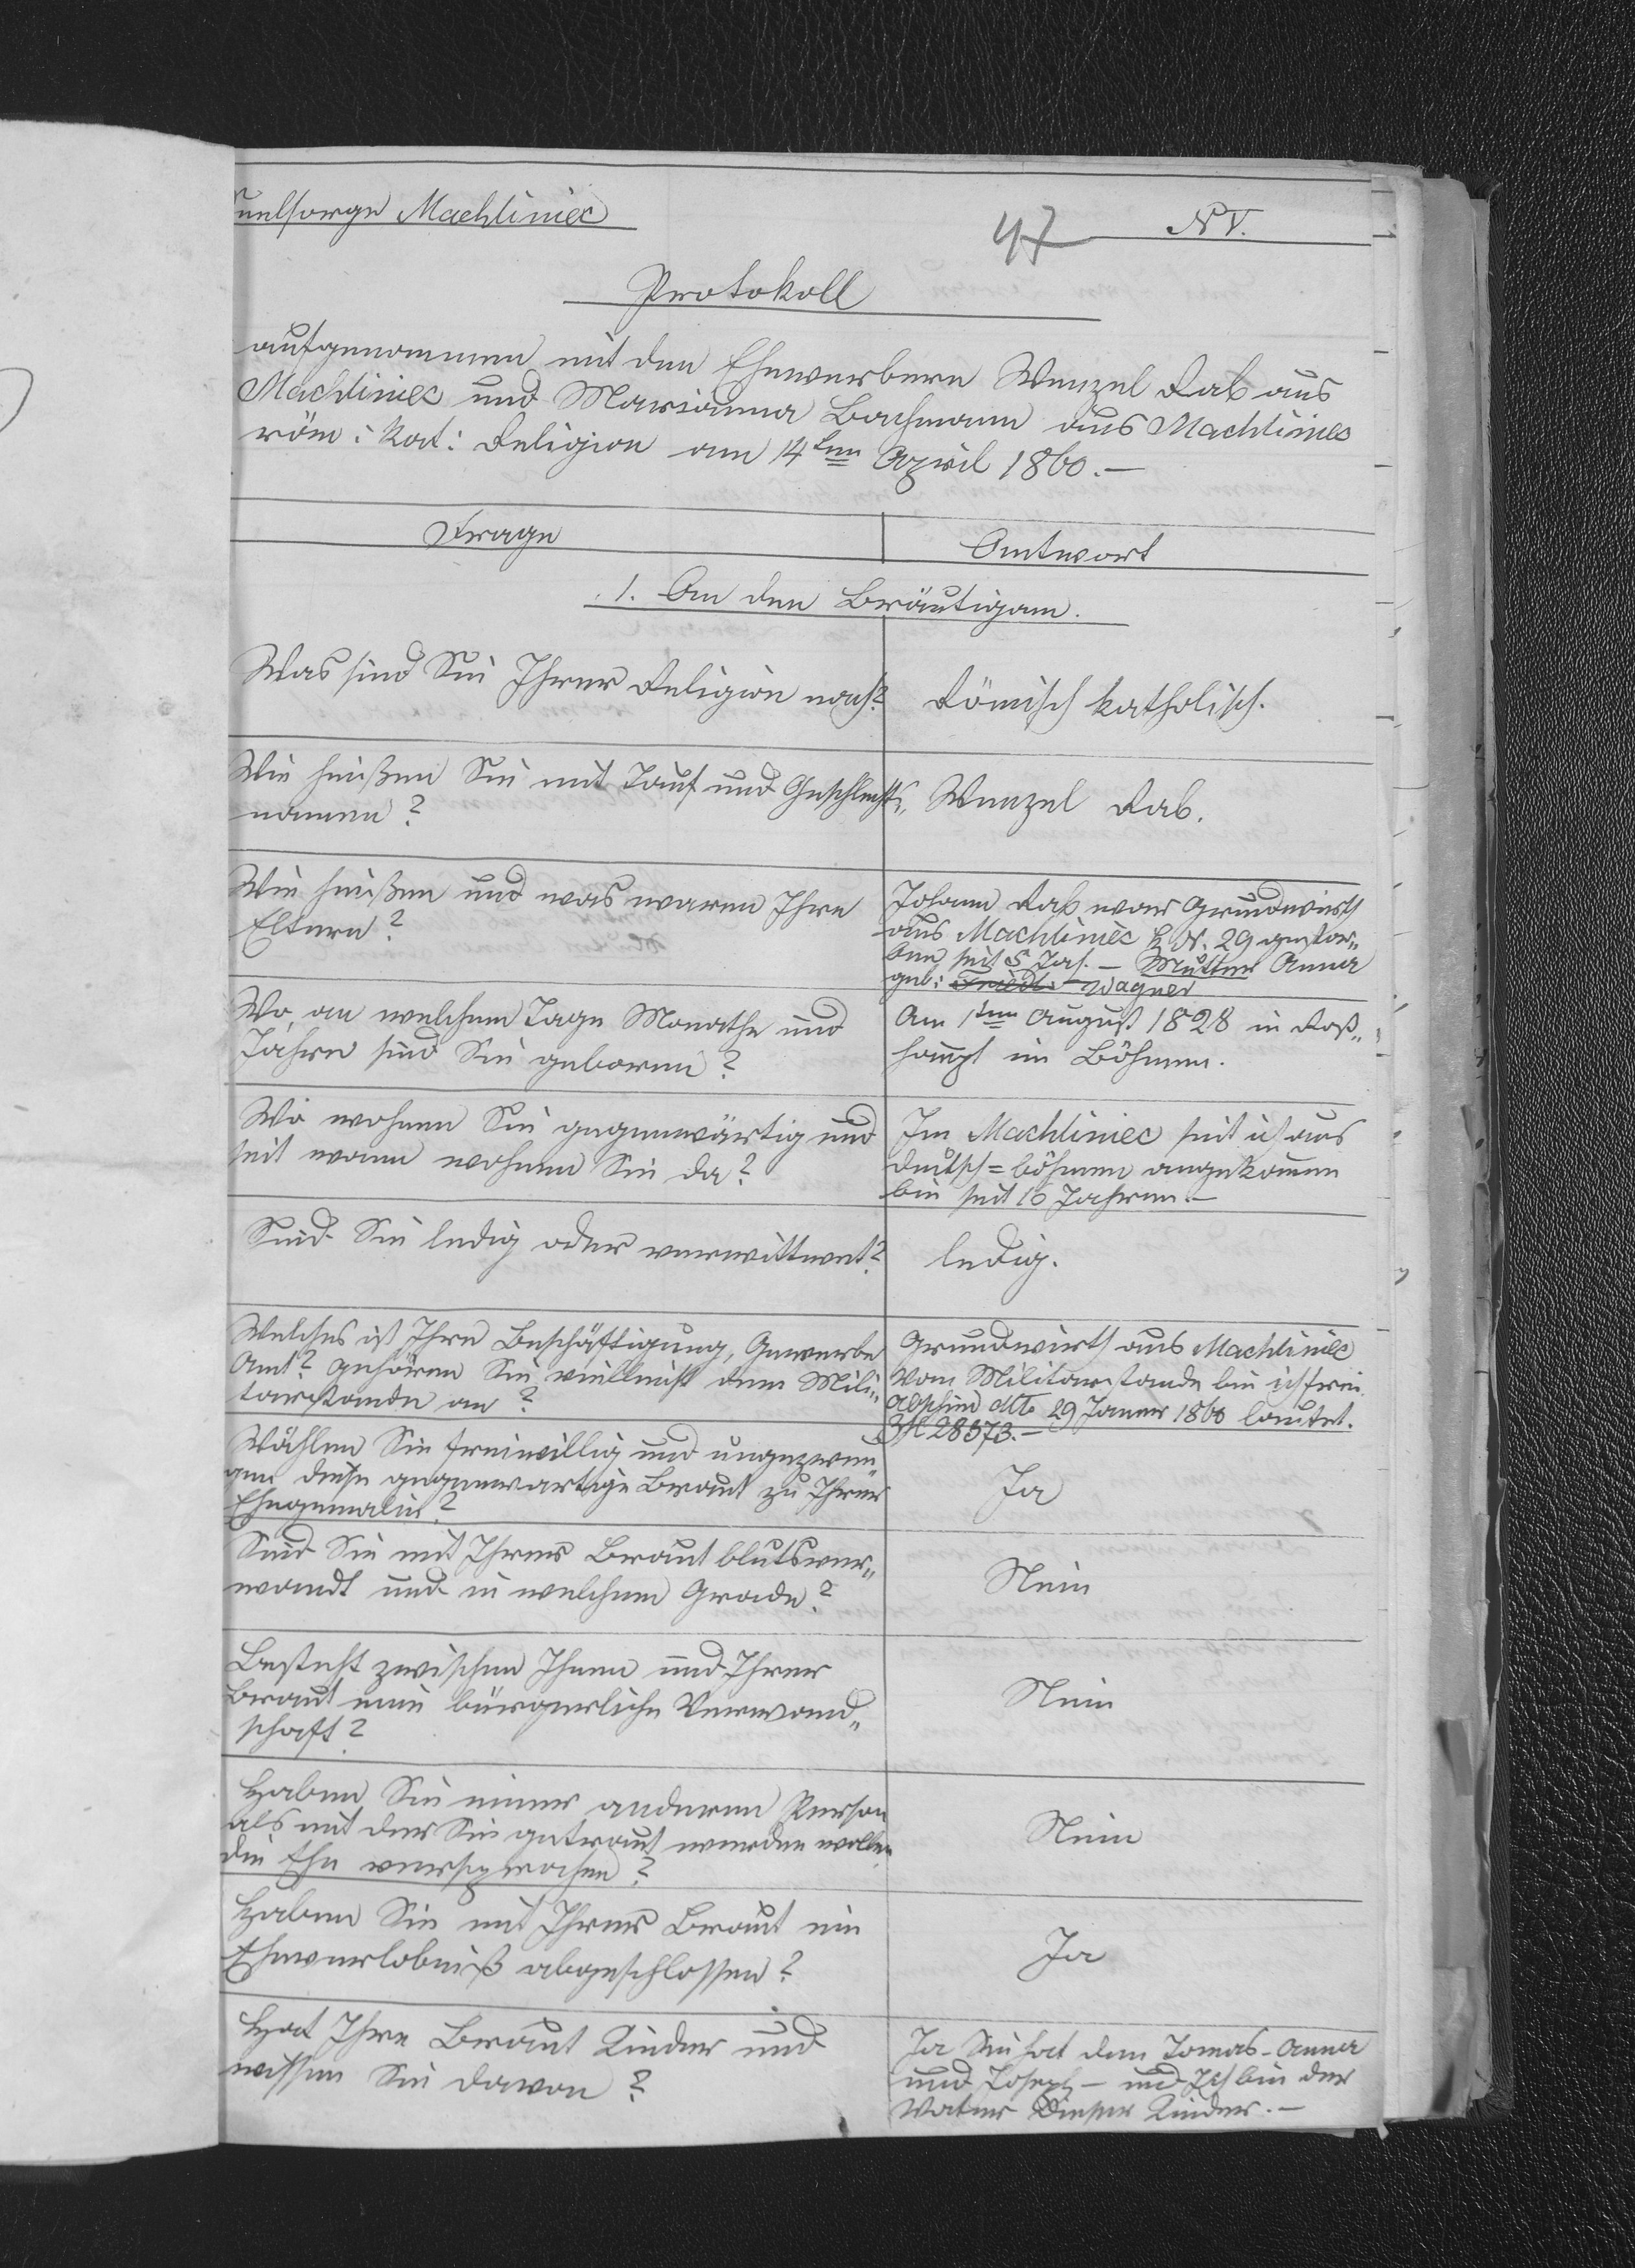 Seelsorge Machliniec
47 N V.
Protokoll
aufgenommen mit den Ehewerbern Wenzel Rab aus
Machliniec und Marianna Bachmann aus Machliniec
röm: kat: Religion am 14ten April 1860.—
Frage
Antwort
1. An den Bräutigam.
Was sind Sie Ihrer Religion nach?
Römisch katholisch.
Wie heißen Sie mit Tauf und Geschlechts„
namen?
Wenzel Rab.
Wie heißen und was waren Ihre
Eltern?
Johann Rab war Grundwirth
aus Machliniec H. N. 29 gestor„
ben seit 5 Jah. — Mutter Anna
geb: Friedl Wagner
Wo, an welchem Tage Monathe und
Jahre sind Sie geboren?
Am 1ten August 1828 in Roß„
haupt in Böhmen.
Wo wohnen Sie gegenwärtig und
seit wann wohnen Sie da?
In Machliniec seit ich aus
Deutsch=böhmen angekommen
bin seit 16 Jahren.—
Sind Sie ledig oder verwittwet?
ledig.
Welches ist Ihre Beschäftigung, Gewerbe
Amt? gehören Sie vielleicht dem Mili„
tairstande an?
Grundwirth aus Machliniec
Vom Militärstande bin ich frei.
Abschied dtto 29 Janer 1860 lautet.
Zhl 28573.—
Wählen Sie freiwillig und ungezwun„
gen diese gegenwartige Braut zu Ihrer
Ehegemalin?
Ja
Sind Sie mit Ihrer Braut blutsver„
wandt und in welchem Grade?
Nein
Besteht zwischen Ihnen und Ihrer
Braut eine bürgerliche Verwand„
schaft?
Nein
Haben Sie einer anderen Person
als mit der Sie getraut werden wollen
die Ehe versprochen?
Nein
Haben Sie mit Ihrer Braut ein
Eheverlobniß abgeschlossen?
Ja
Hat Ihre Braut Kinder und
wissen Sie davon?
Ja Sie hat den Tomas - Anna
und Joseph — und Ich bin der
Vater dieser Kinder.—